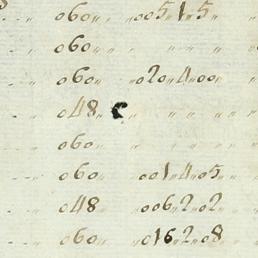 060 „ „ 005 „ 1 „ 5 „
060 „ „ „ „ „
060 „ „ 020 „ 4 „ 00 „
048 „ „ „
060 „
060 „ „ 001 „ 4 „ 05 „
048 „ „ 006 „ 2 „ 02 „
060 „ „ 016 „ 2 „ 08